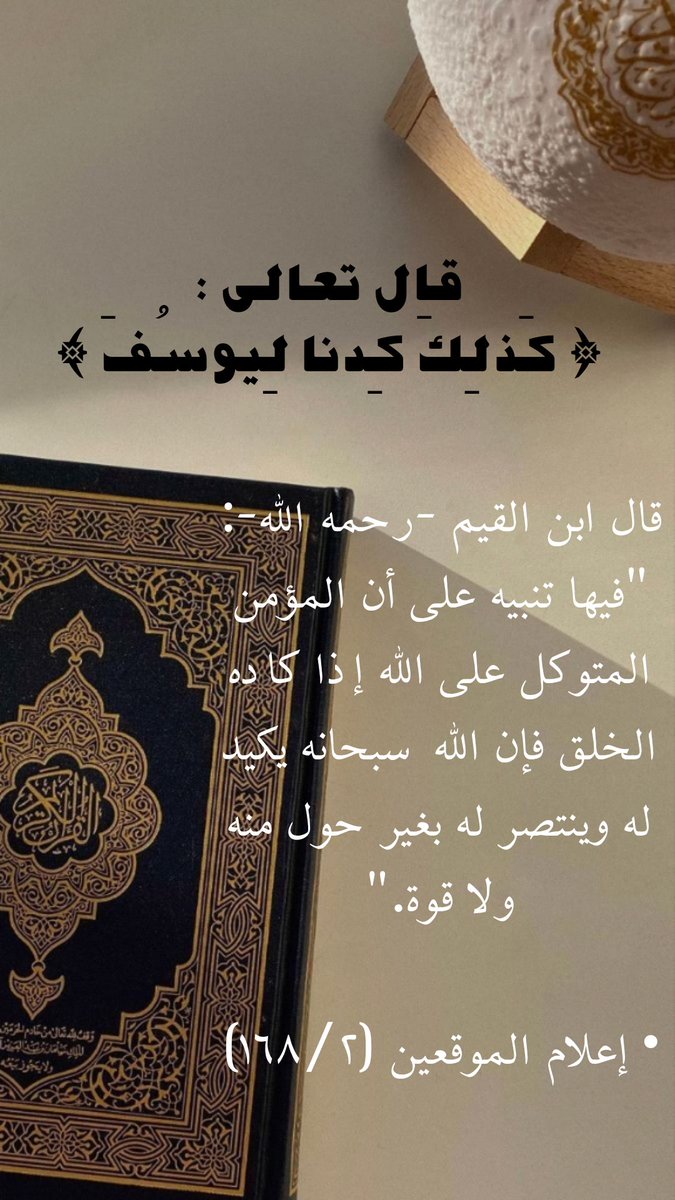 قال تعالى :
﴿ كَذلِك كِدنا لِيوسُفَ ﴾
قال ابن القيم -رحمه الله-:
"فيها تنبيه على أن المؤمن
المتوكل على الله إذا كاده
الخلق فإن الله سبحانه يكيد
له وينتصر له بغير حول منه
ولا قوة."
• إعلام الموقعين (٢/١٦٨)
القرآن الكريم